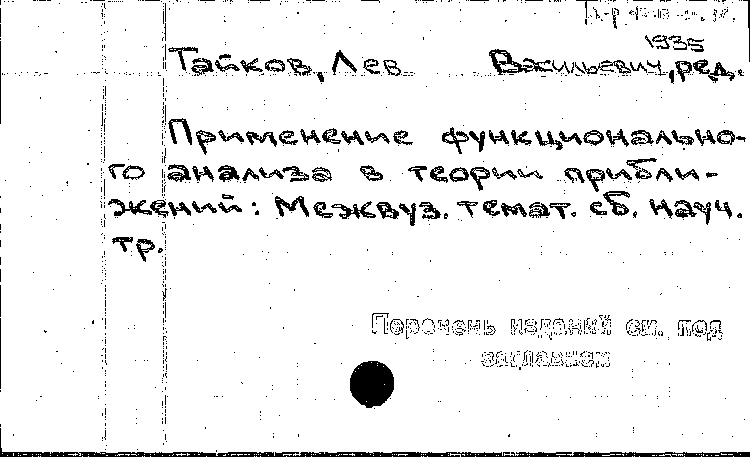 1935
Тайков, Лев Васильевич, ред.
Применение функционально-
го анализа в теории прибли-
жений: Межвуз. темат. сб. науч.
тр.
Перечень изданий см. под
заглавием